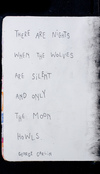 THERE ARE NIGHTS
WHEN THE WOLVES
ARE SILENT
AND ONLY
THE MOON
HOWLS
GEORGE CARLIN